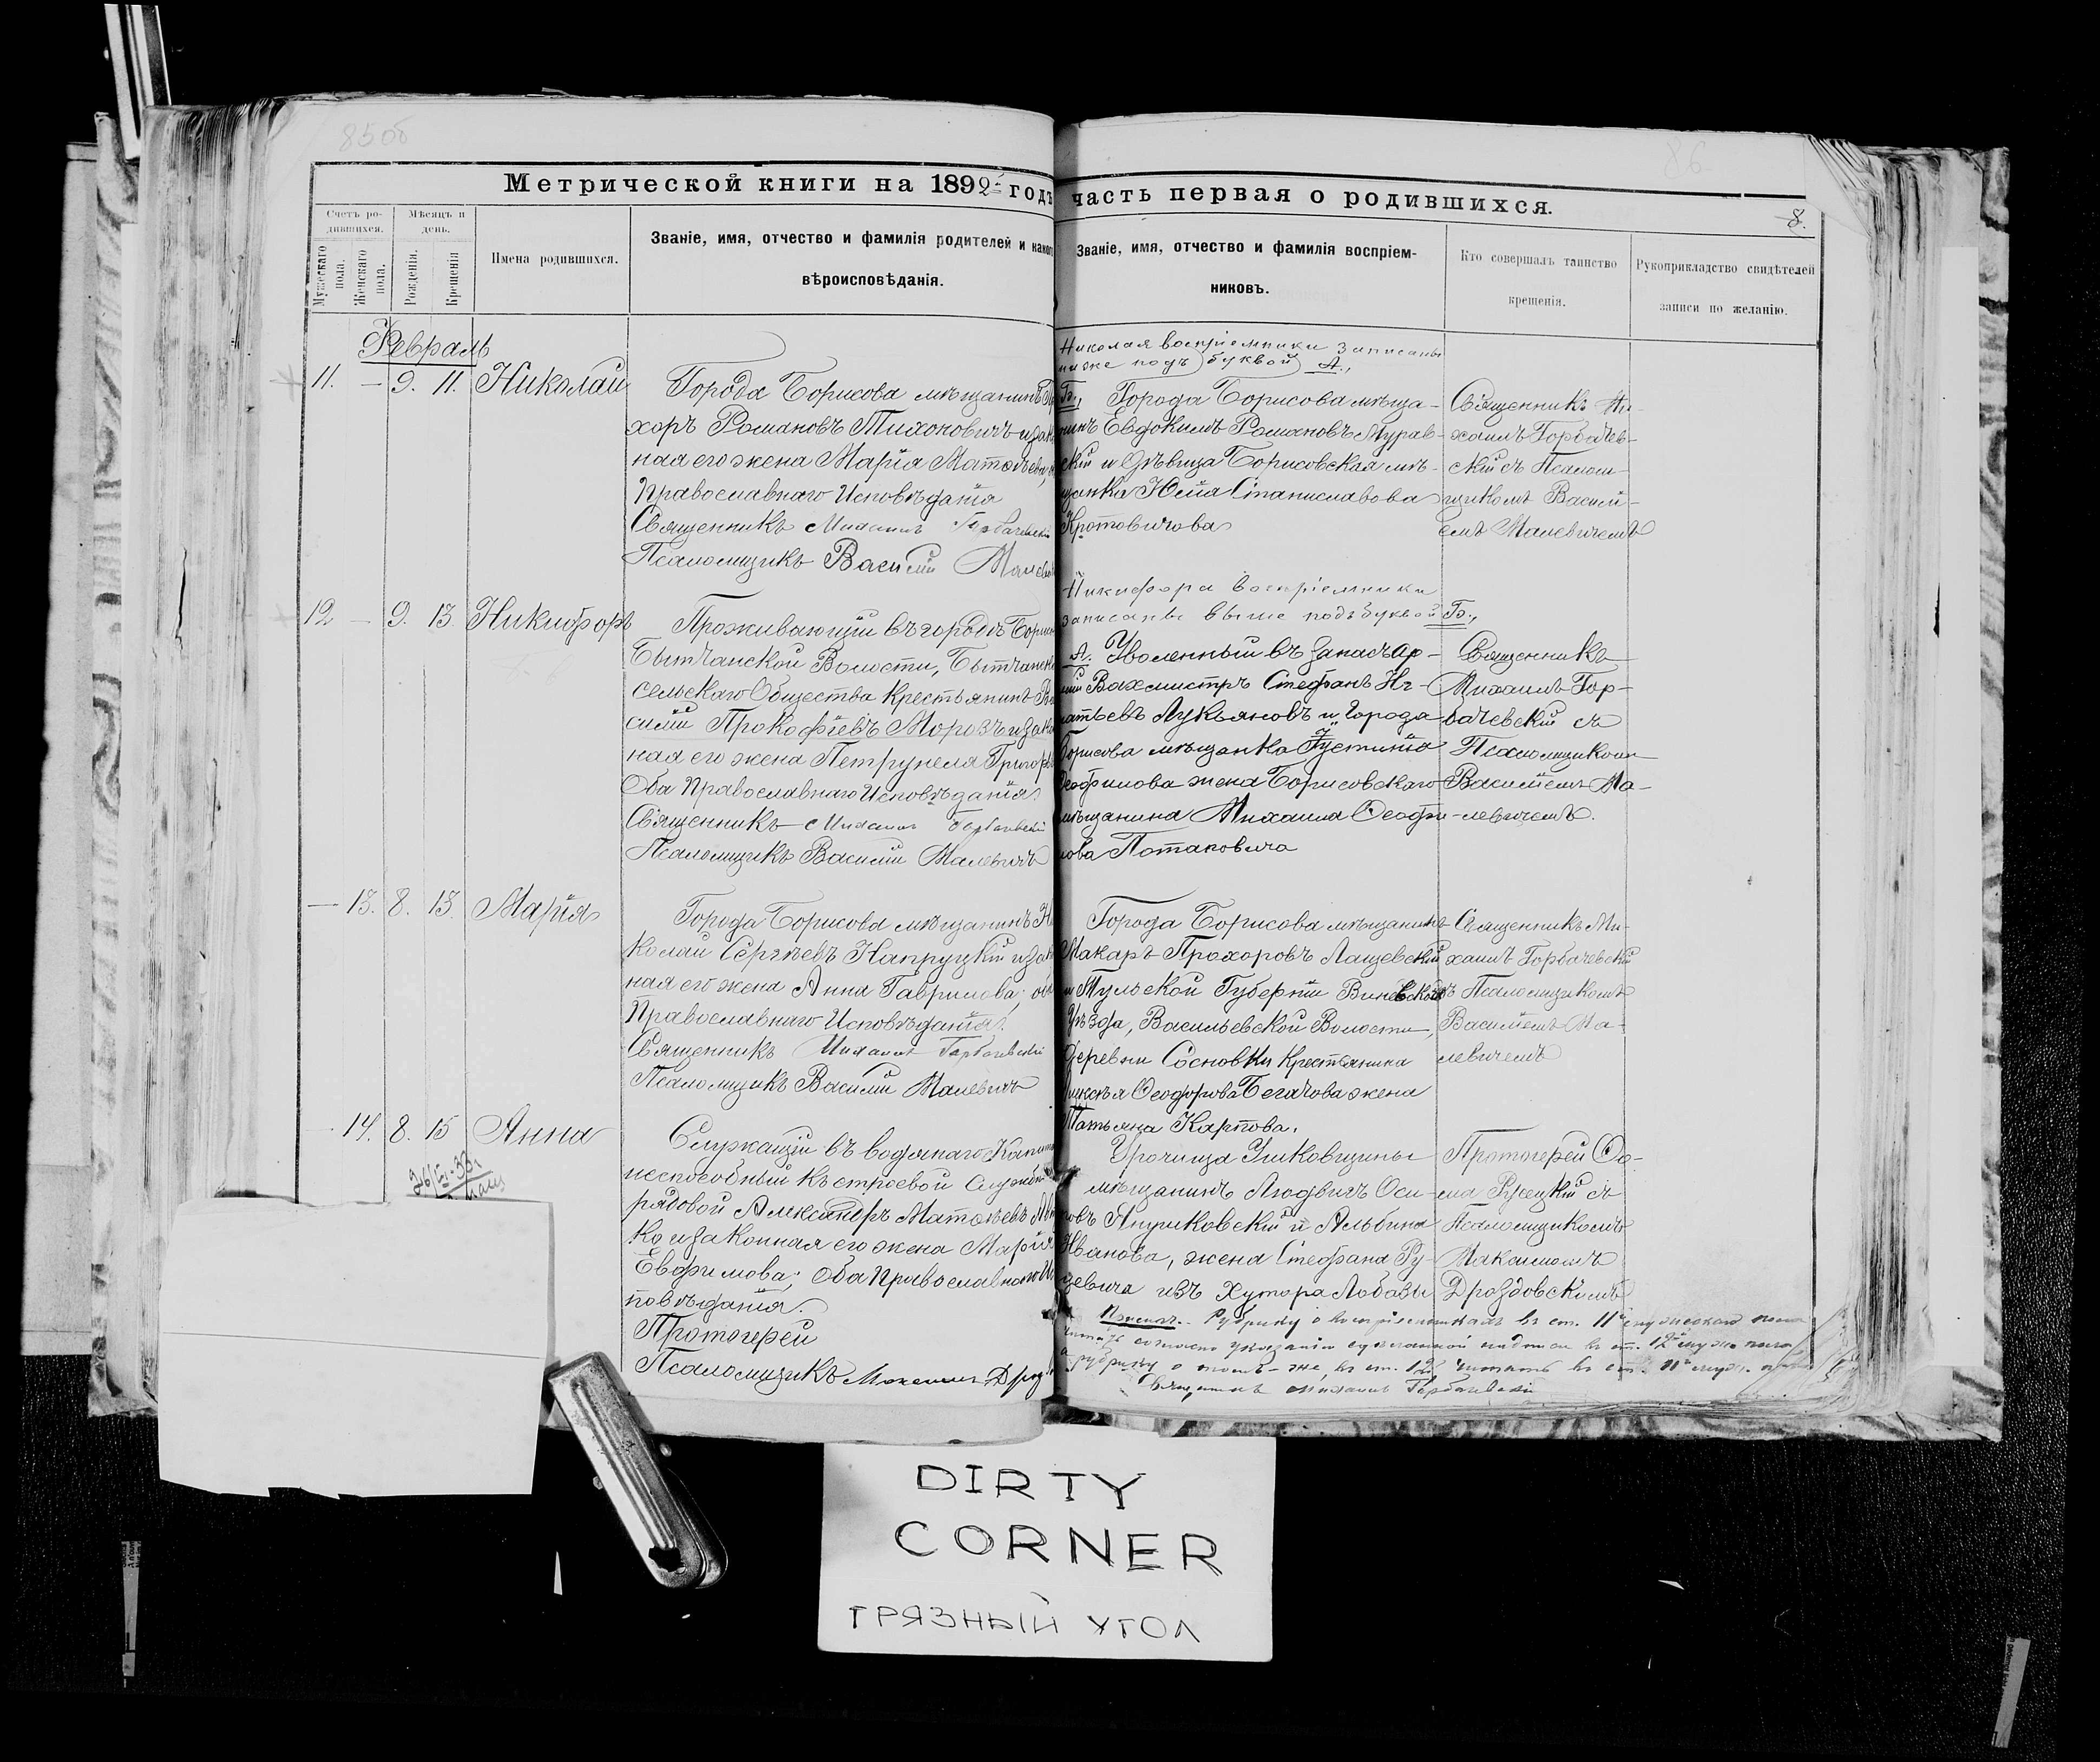 85об
86
Метрической книги на 1892 годъ часть первая о родившихся.
8.
Счетъ ро-
дившихся.
Мужескаго пола.
Женскаго пола.
Мѣсяцъ и
день.
Рожденія.
Крещенія
Имена родившихся.
Званіе, имя, отчество и фамилія родителей и какого
вѣроисповѣданія.
Званіе, имя, отчество и фамилія воспріем-
никовъ.
Кто совершалъ таинство
крещенія.
Рукоприкладство свидѣтелей
записи по желанію.
Февраль
11. — 9. 11. Николай
Города Борисова мѣщанинъ
хоръ Романовъ Тихоновичъ и зак
ная его жена Марія Матѳѣева
Православнаго Исповѣданія
Священникъ Михаилъ Горбачевскій
Псаломщикъ Василій Малев
Николая воспріемники записаны
ниже подъ буквой А.,
Б., Города Борисова мѣща-
нинъ Евдокимъ Романовъ Мурав-
скій и Дѣвица Борисовская мѣ-
щанка Юлія Станиславова
Кротовичова
Священникъ Ми-
хаилъ Горбачев-
скій съ Псалом-
щикомъ Васили-
емъ Малевичемъ
12 — 9. 13. Никифоръ
Проживающій въ городѣ Борис
Бытчанской Волости, Бытчанск
сельскаго Общества крестьянинъ Ва
силій Прокофіевъ Морозъ и зако
ная его жена Петрунеля Григорь
Оба Православнаго Исповѣданія
Священникъ Михаилъ Горбачевскій
Псаломщикъ Василій Малевичъ
Никифора воспріемники
записаны выше подъ буквой Б.,
А. Уволенный въ запасъ Ар-
міи Вахмистръ Стефанъ Иг-
натьевъ Лукьяновъ и Города
Борисова мѣщанка Густинія
Ѳеофилова жена Борисовскаго
мѣщанина Михаила Ѳеофи-
лова Потаповича
Священникъ
Михаилъ Гор-
бачевскій съ
Псаломщикомъ
Василіемъ Ма-
левичемъ.
— 13. 8. 13. Марія
Города Борисова мѣщанинъ Ни
колай Сергѣевъ Напруцкій и зак
ная его жена Анна Гаврилова; об
Православнаго Исповѣданія.
Священникъ Михаилъ Горбачевскій
Псаломщикъ Василій Малевичъ
Города Борисова мѣщанинъ
Макаръ Прохоровъ Лащевскій
и Тульской Губерніи Виневской
Уѣзда, Васильевской Волости,
Деревни Сосновки Крестьянина
Алексѣя Ѳеодорова Бегачова жена
Татьяна Карпова.
Священникъ Ми-
хаилъ Горбачевскій
съ Псаломщикомъ
Василіемъ Ма-
левичемъ
14. 8. 15 Анна
Служащій въ водянаго
неспособный къ строевой службѣ
рядовой Александръ Матѳѣевъ
ко и законная его жена Марія
Евфимова; Оба Православнаго Ис
повѣданія.
Протоіерей
Псаломщикъ Максимъ Дрозд
Урочища Ушковщины
мѣщанинъ Людвигъ Оси-
повъ Янушковскій и Альбина
Иванова, жена Стефана Ру-
цевича изъ Хутора Лобазы
Протоіерей Ѳо-
ма Русецкій съ
Псаломщикомъ
Максимомъ
Дроздовскимъ
Рубрику о воспріемникахъ въ ст. 11й мужескаго пола
читать согласно указанію сдѣланной надписи въ ст. 12й муж. пола
а рубрику о томъ-же, въ ст. 12й читать въ ст. 11й муж. пола
Священникъ Михаилъ Горбачевскій
DIRTY
CORNER
ГРЯЗНЫЙ УГОЛ